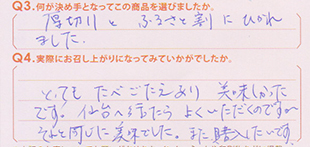 Q3.何が決め手となってこの商品を選びましたか。
厚切りと ふるさと割にひかれ
ました。
Q4.実際にお召し上がりになってみていかがでしたか。
とっても たべごたえあり 美味しかった
です。仙台へ行ったら よくいただくのですが
それと同じに美味でした。また購入したいです